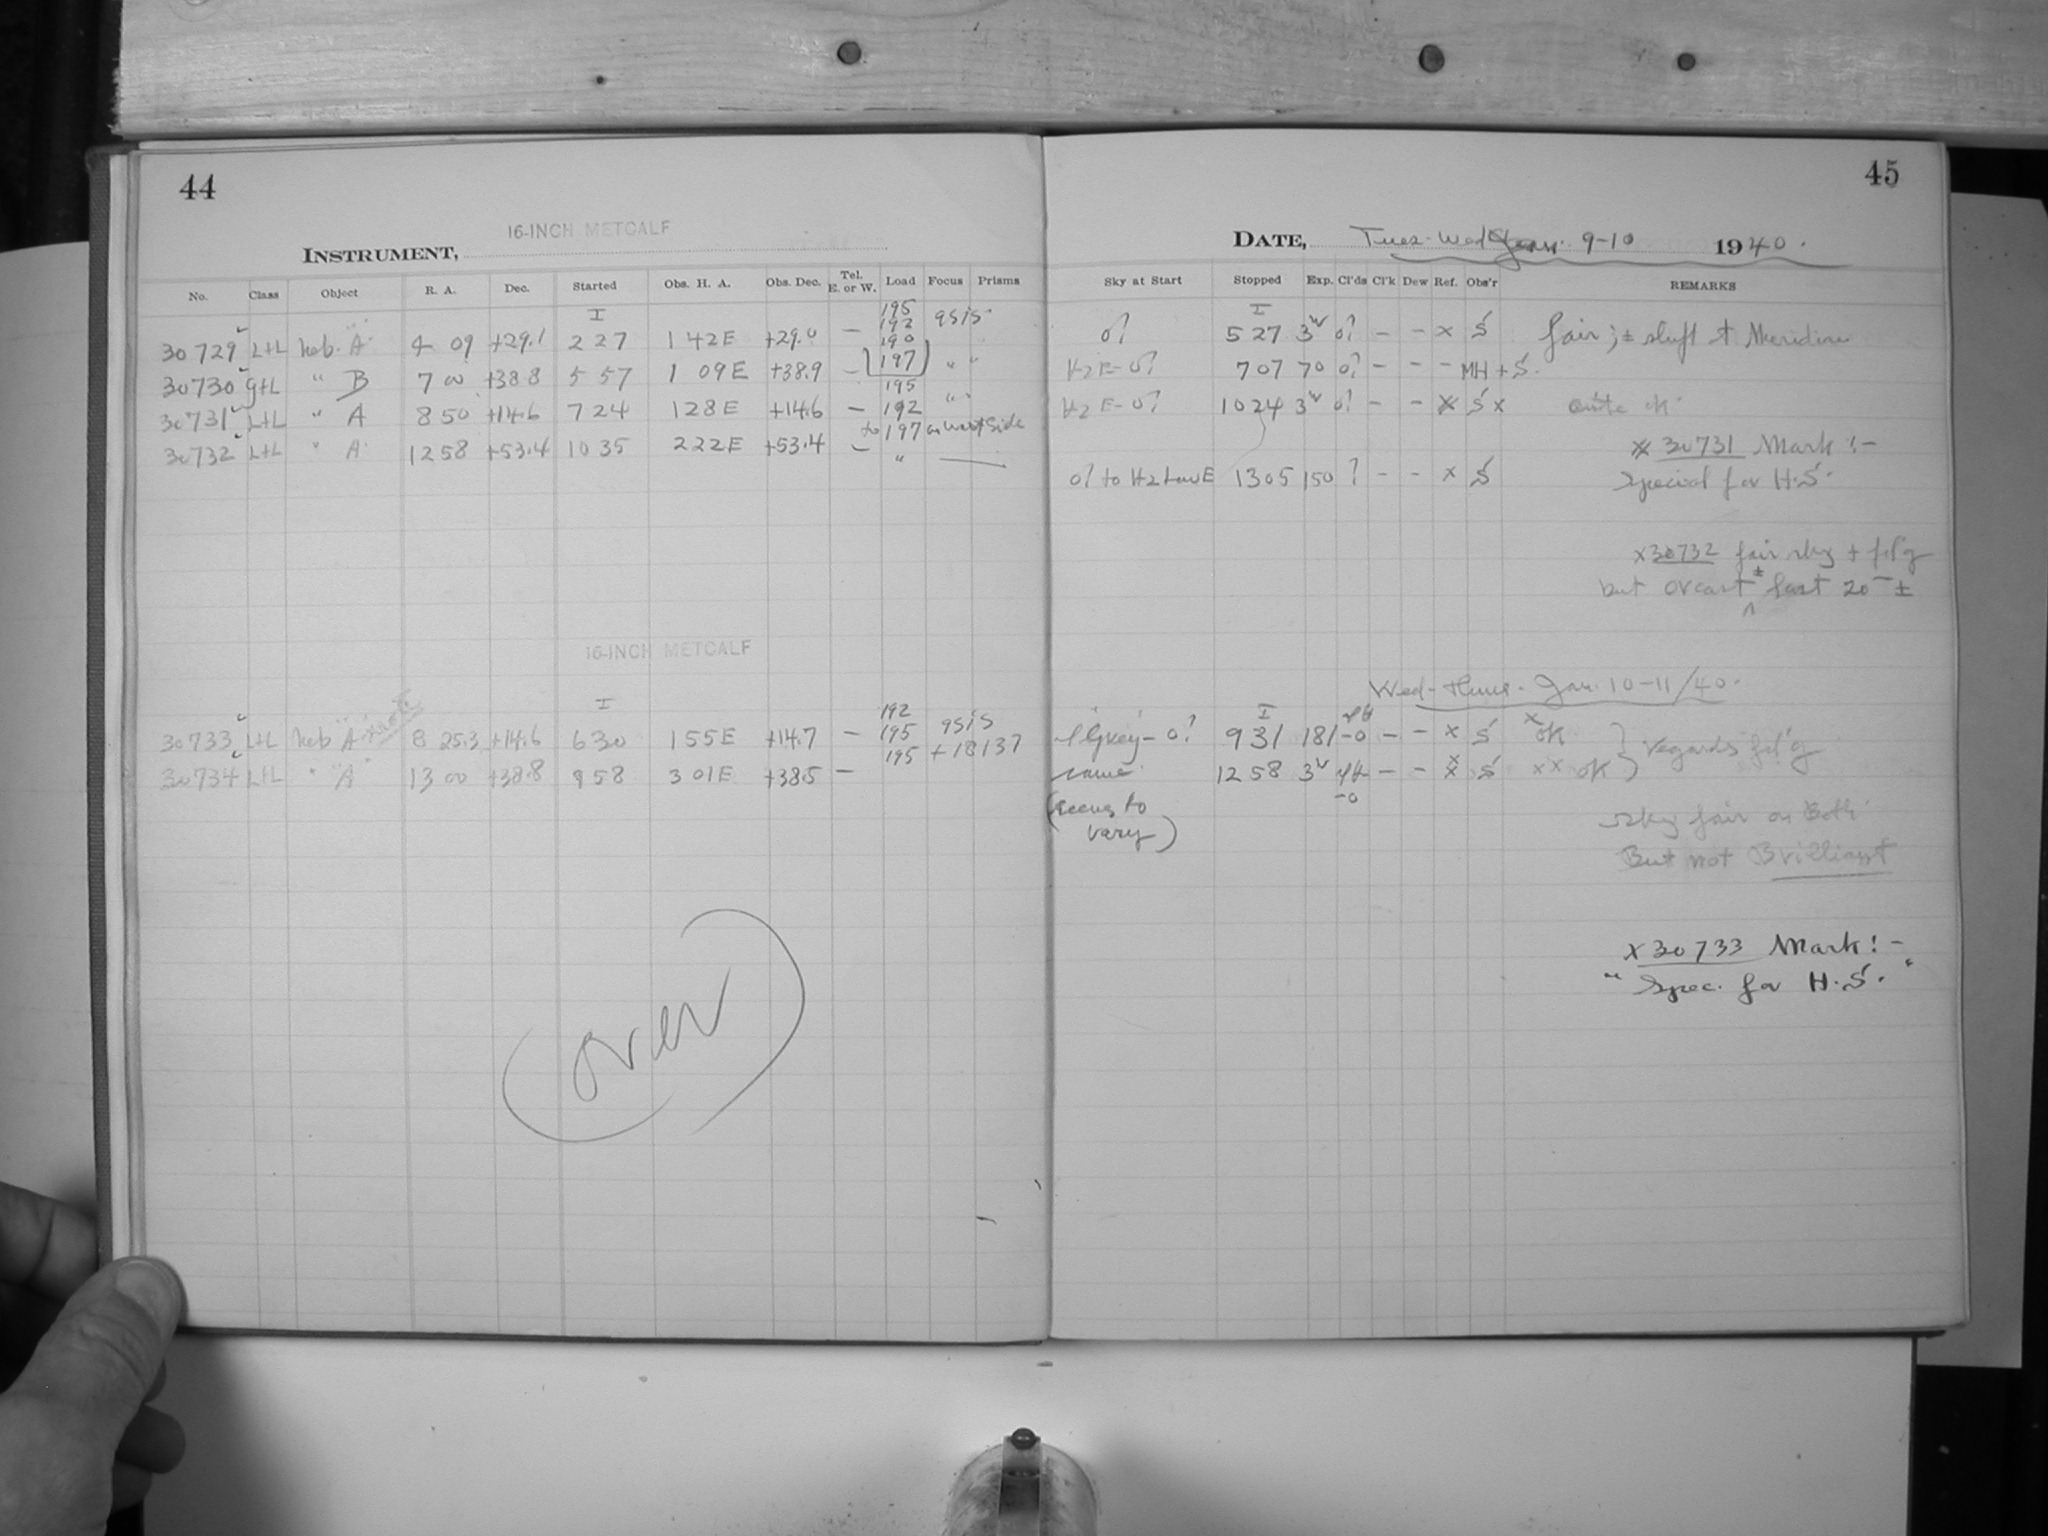 44
16-INCH METCALF
INSTRUMENT,
No. Class Object R. A. Dec. Started Obs. H. A. Obs. Dec. Tel. E. or W. Load Focus Prisms
I 195
30729 L+L neb. "A" 4 09 +29.1 2 27 1 42E +29.0 — 192 9515
190
30730 G+L " B 7 00 +38 8 5 57 1 09E +38.9 — (197) " "
195
30731 L+L " A 8 50 +14.6 7 24 1 28E +14.6 — 192 " "
to 197 on West Side
30732 L+L " A 12 58 +53.4 10 35 2 22E +53.4 — "
16-INCH METCALF
I 192
30733 L+L neb "A" 8 25.3 +14.6 6 30 1 55E +14.7 — 195 9515
195 + 18137
30734 L+L " "A" 13 00 +38.8 9 58 3 01E +38.5 —
(over)
45
DATE, Tues-Wed Jan. 9-10 1940.
Sky at Start Stopped Exp. Cl'ds Cl'k Dew Ref. Obs'r REMARKS
I
0? 5 27 3h 0? — — x S fair; ± shift at Meridian
H2E-0? 7 07 70 0? — — — MH + S.
H2E-0? 10 24 3h 0? — — x S x Quite ok
x 30731 Mark!-
0? to H2 Low E 13 05 150 ? — — x S Special for H.S.
x30732 fair sky + fol'g
but ovcast ± last 20m ±
Wed-Thurs. Jan. 10-11/40.
I
"Grey"-0? 9 31 181 -0 — — x S x ok } regards fol'g
same 12 58 3h — — x S xx ok
-0
(seems to
vary)
Sky fair on Both
But not Brilliant
x 30733 Mark!-
"Spec. for H.S."